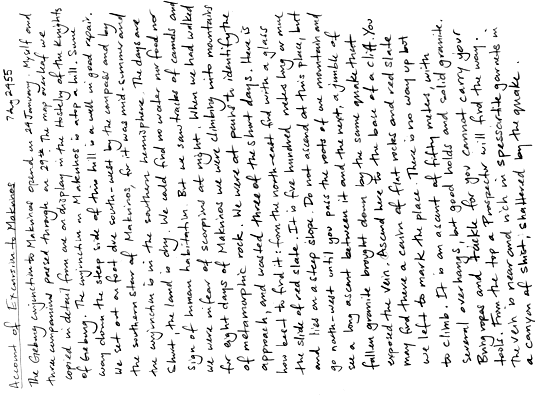 Account of Excursion to Makinos 7 Aug 2955
The Grebing conjunction to Makinos opened in 29 January. Myself and
three companions passed through in 29th. The map overleaf we
copied in detail from one on display in the hostelry of the Knights
of Grebing. The conjunction in Makinos is atop a hill. Some
way down the steep side of this hill is a well in good repair.
We set out on foot are south-west by the compass and by
the southern star of Makinos, for it was mid-summer and
the conjunction is in the southern hemisphere. The days are
short, the land is dry. We could find no water nor food nor
sign of human habitation. But we saw tracks of camels and
we were in fear of scorpions at night. When we had walked
for eight days of Makinos we were climbing into mountains
of metamorphic rock. We were at pains to identify the
approach, and wasted three of the short days. Here is
how best to find it: from the north-east find with a glass
the slide of red slate. It is five hundred metres long or more
and lies on a steep slope. Do not ascend at this place, but
go north-west until you pass the roots of one mountain and
see a long ascent between it and the next, a jumble of
fallen granite brought down by the same quake that
exposed the vein. Ascend here to the base of a cliff. You
may find there a cairn of flat rocks and red slate
we left to mark the place. There is no way up but
to climb. It is an ascent of fifty meters, with
several overhangs, but good holds and solid granite.
Bring ropes and tackle for you cannot carry your
tools. From the top a Prospector will find the way.
The vein is near and rich in spessartite garnets in
a canyon of shist, shattered by the quake.